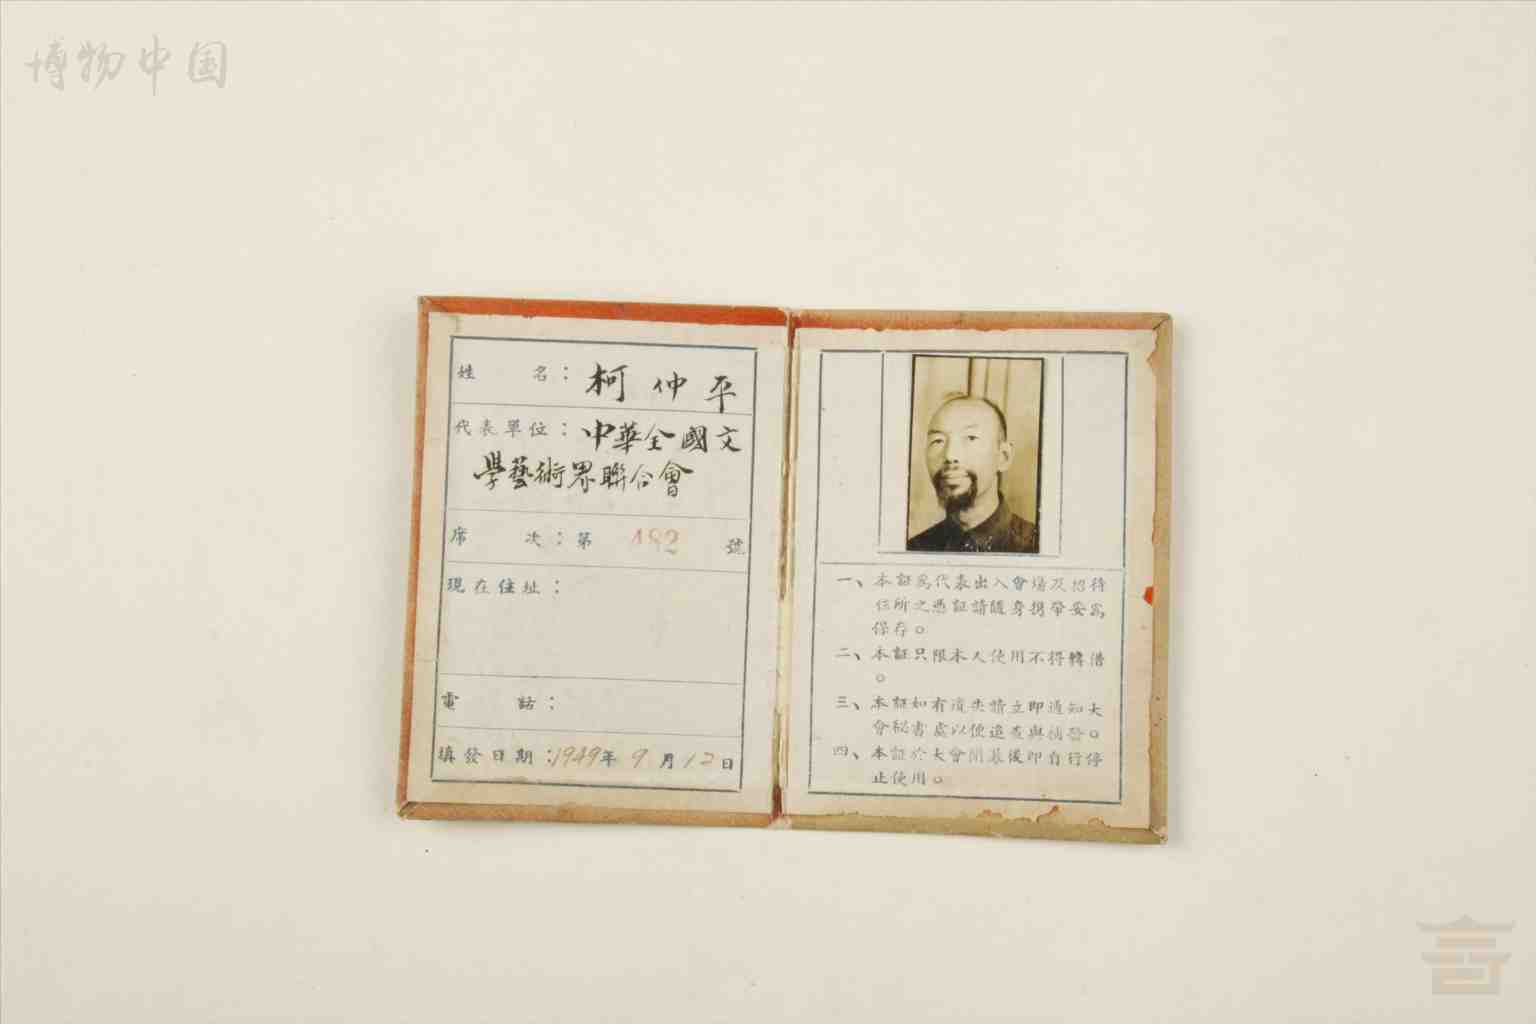 博物中国
姓 名：柯仲平
代表單位：中華全國文
學藝術界聯合會
席 次：第 482 號
現在住址：
電 話：
填發日期：1949年9月12日
一、本証爲代表出入會場及招待
住所之憑証請隨身携帶妥爲
保存。
二、本証只限本人使用不得轉借
。
三、本証如有遺失請立即通知大
會秘書處以便追查與補發。
四、本証於大會閉幕後即自行停
止使用。